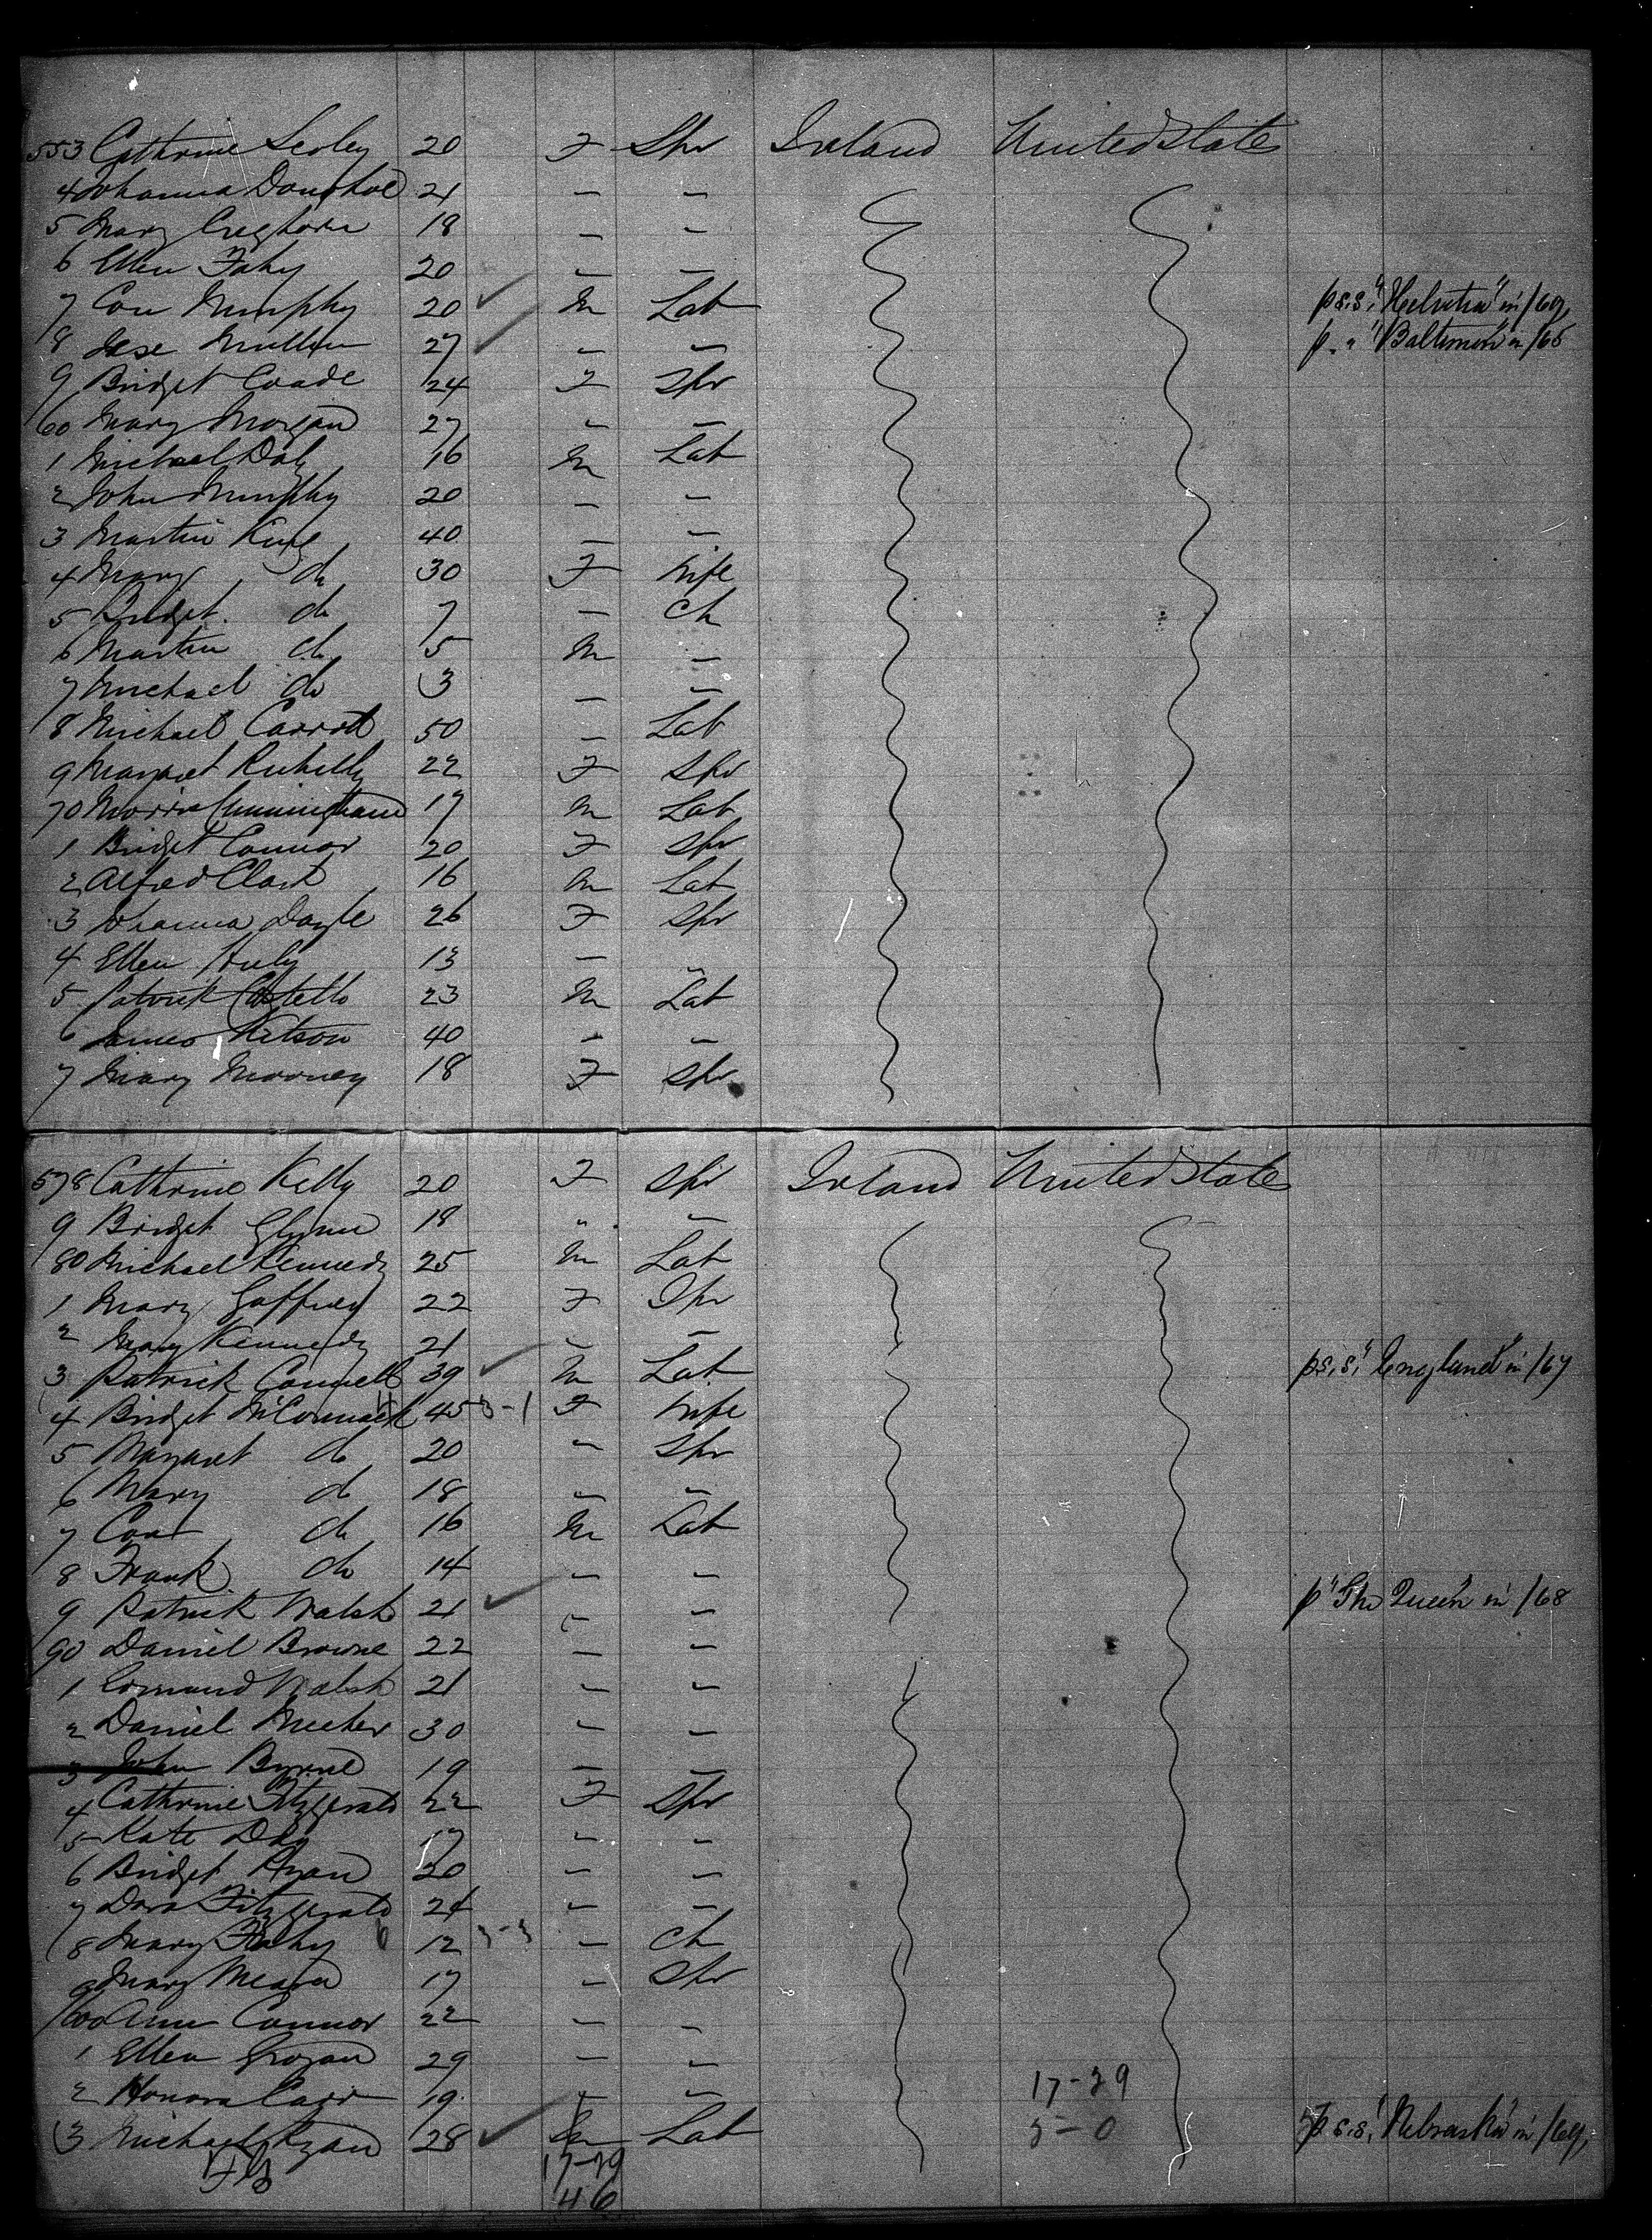 553 Cathrine 20 F Spr Ireland United States
4 Johanna Donohoe 21 — —
5 Mary Creghorn 18 — —
6 Ellen Fahy 20 — —
7 Con Murphy 20 M Lab p s.s. "Helvetia" in /69,
8 Jese Mullen 27 — — p " "Baltimore" in /66
9 Bridget Coade 24 F Spr
60 Mary Morgan 27 — —
1 Michael Daly 16 M Lab
2 John Murphy 20 — —
3 Martin King 40 — —
4 Mary do 30 F Wife
5 Bridget do 7 — Ch
6 Martin do 5 M —
7 Michael do 3 — —
8 Michael Carroll 50 — Lab
9 Margaret 22 F Spr
70 Morris Cunningham 17 M Lab
1 Bridget Connor 20 F Spr
2 Alfred Clark 16 M Lab
3 Johanna Doyle 26 F Spr
4 Ellen Hely 13 — —
5 Patrick Costello 23 M Lab
6 James Kitson 40 — —
7 Mary Mooney 18 F Spr
578 Cathrine Kelly 20 F Spr Ireland United States
9 Bridget Glynn 18 " —
80 Michael Kennedy 25 M Lab
1 Mary Gaffney 22 F Spr
2 Mary Kennedy 21 — —
3 Patrick Connell 39 M Lab p s.s. "England" in /67
4 Bridget McCormack 45 3-1 F Wife
5 Margaret do 20 — Spr
6 Mary do 18 — —
7 Con do 16 M Lab
8 Frank do 14 — —
9 Patrick Walsh 21 — — p "The Queen" in /68
90 Daniel Browne 22 — —
1 Edmund Walsh 21 — —
2 Daniel Meeher 30 — —
3 John Byrne 19 — —
4 Cathrine Fitzgerald 22 F Spr
5 Kate Day 17 — —
6 Bridget Ryan 20 — —
7 Dora Fitzgerald 24 — —
8 Mary Flahy 6 12 3-3 — Ch
9 Mary Meara 17 — Spr
600 Ann Connor 22 — —
1 Ellen Grogan 29 — —
2 Honora Carr 19 — — 17-29
3 Michael Ryan 28 M Lab 5-0 p s.s. "Nebraska" in /69,
17-29
46